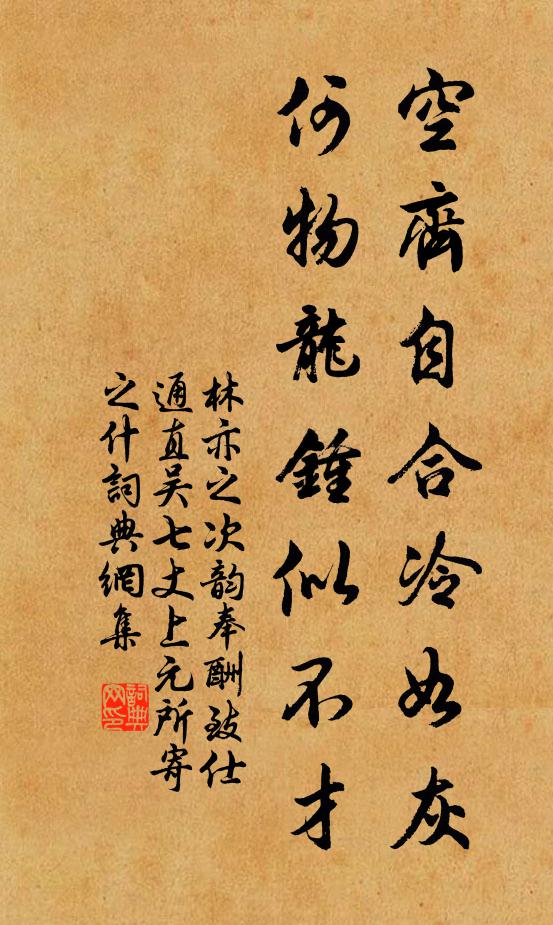 空齊自合冷如灰
何物龍鍾似不才
林亦之次韵奉酬致仕
通直吴七丈上元所寄
之什詞典網集
詞典网印